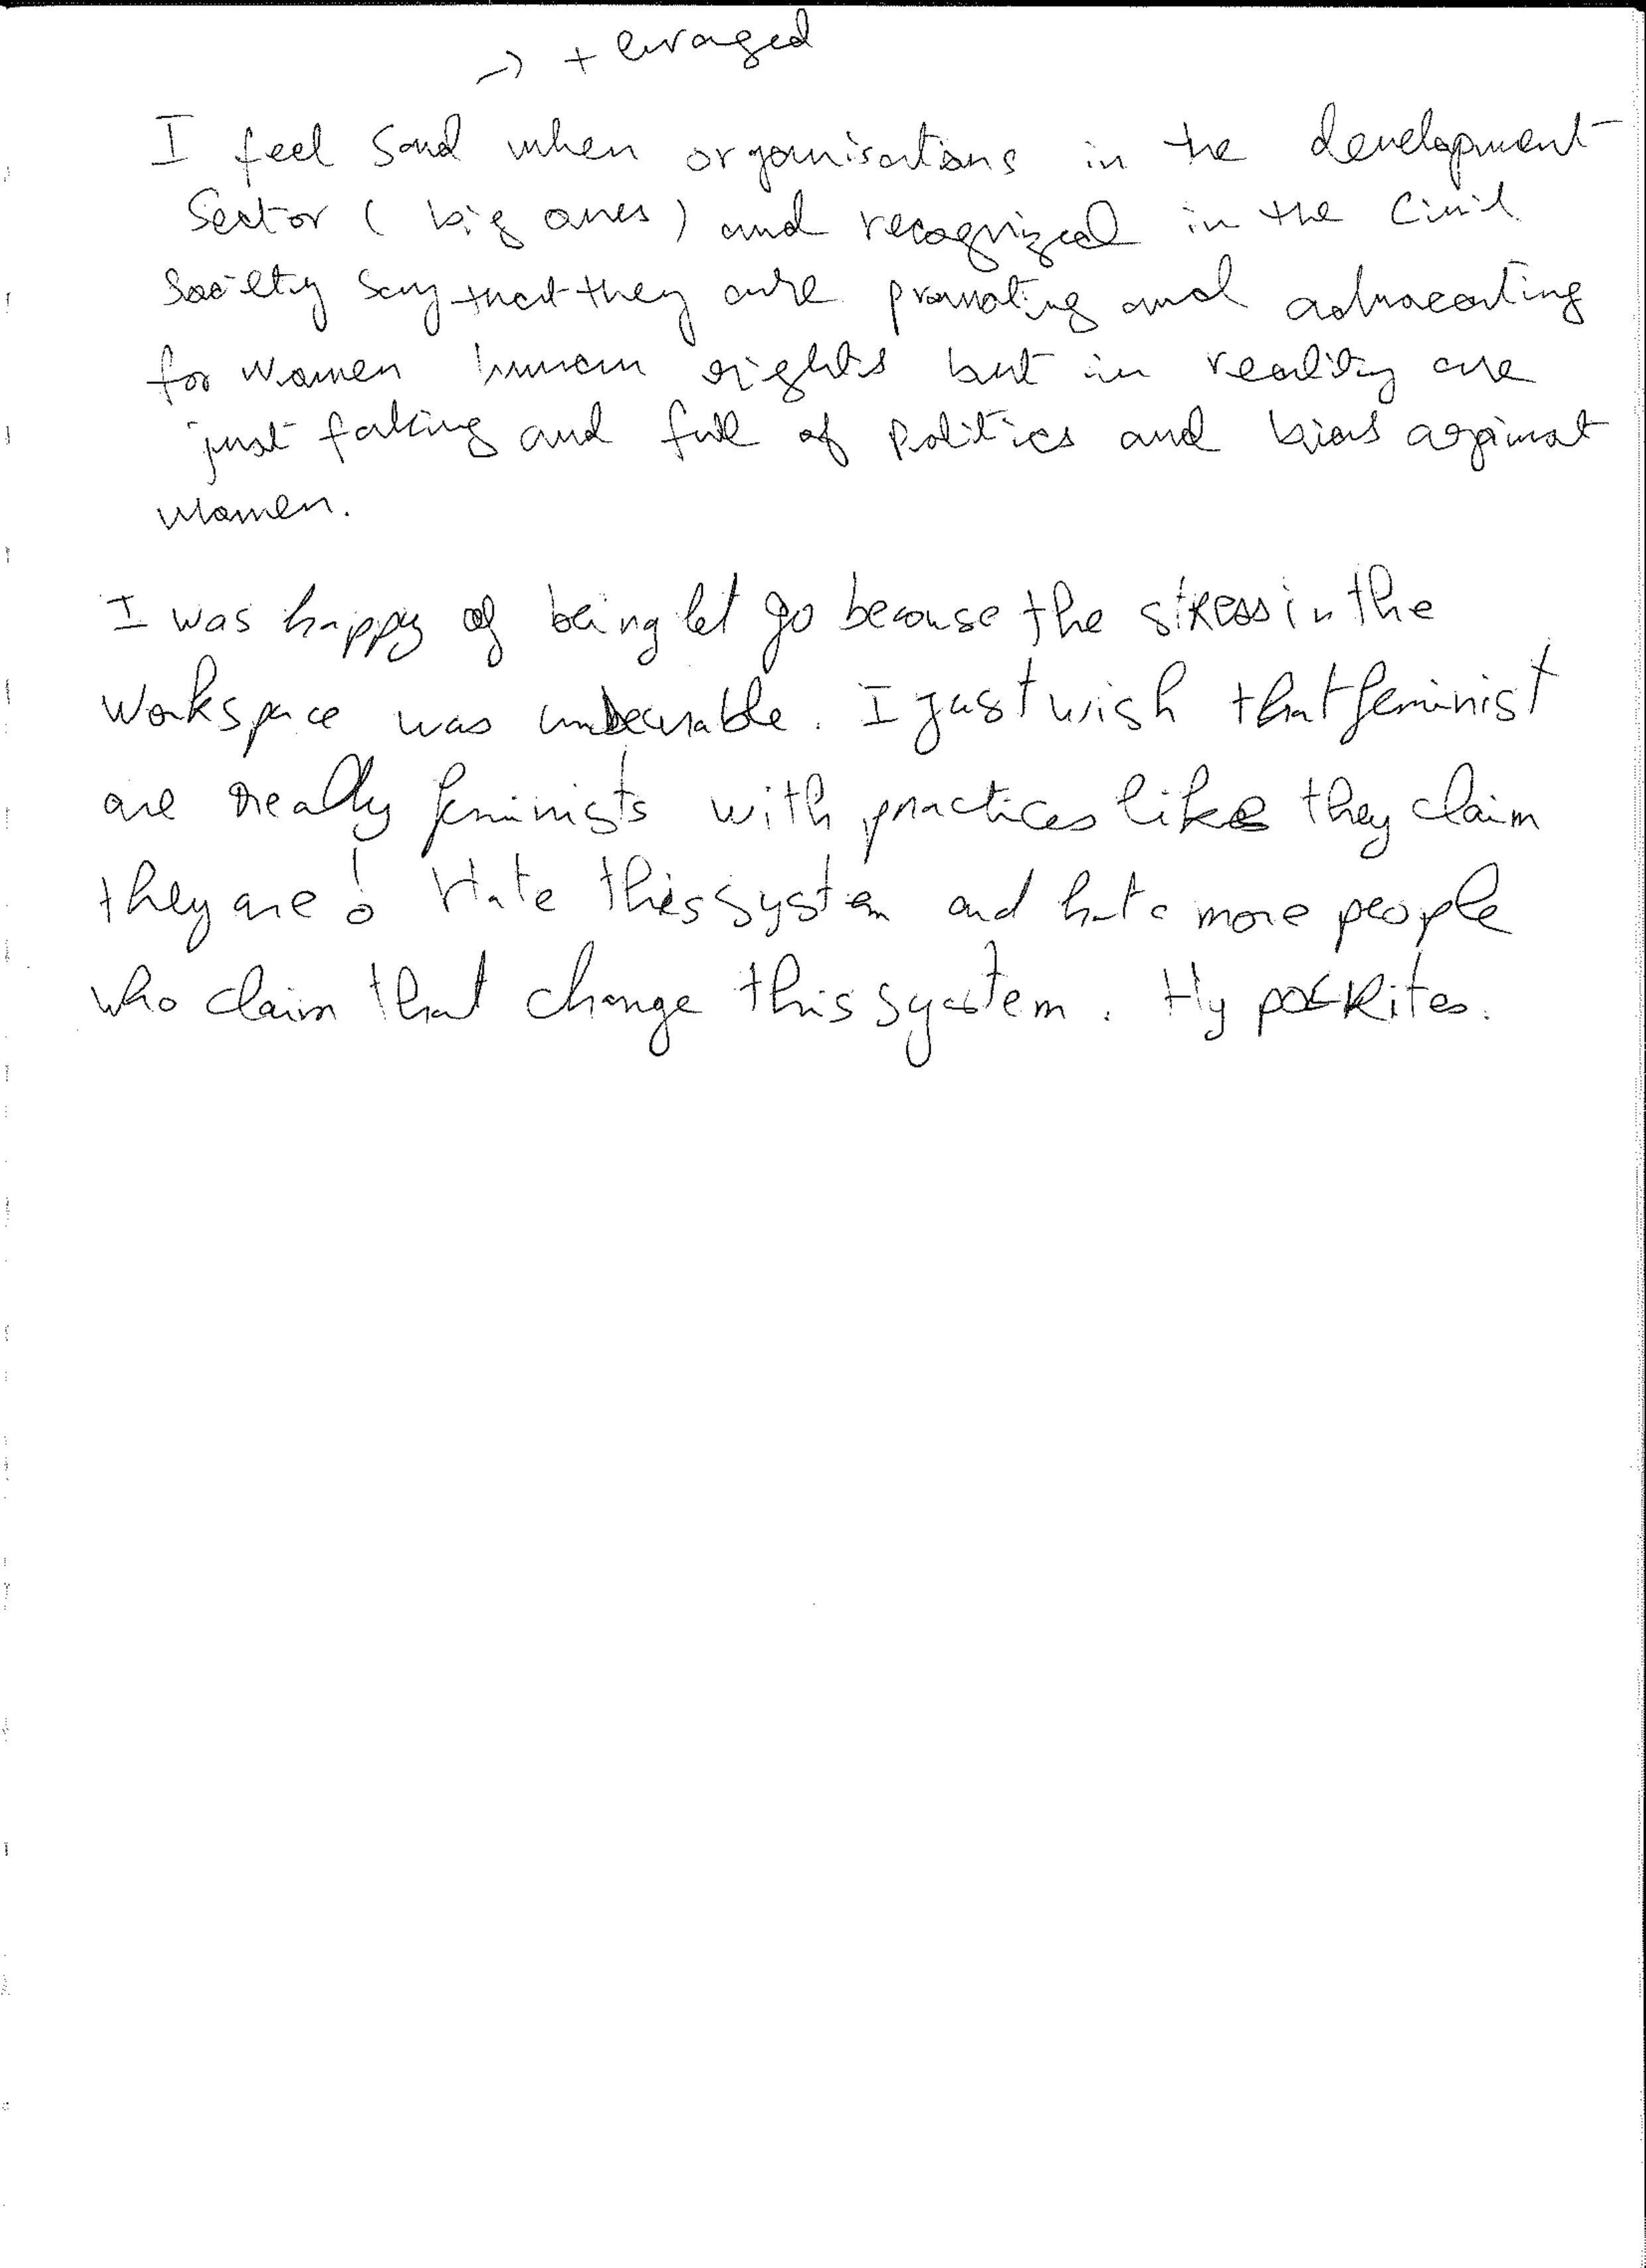 → + enraged
I feel sad when organisations in the development
Sector (big ones) and recognized in the Civil
Society say that they are promoting and advocating
for women human rights but in reality are
just faking and full of politics and bias against
women.
I was happy of being let go because the stress in the
workspace was unbearable. I just wish that feminist
are really feminists with practices like they claim
they are! Hate this system and hate more people
who claim that change this system. Hypocrites.